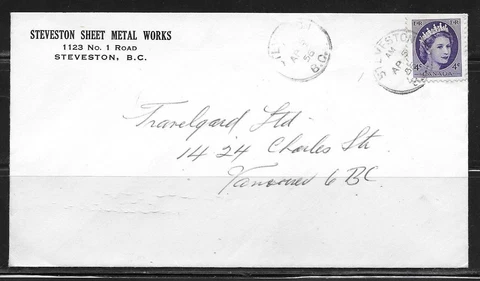 STEVESTON SHEET METAL WORKS
1123 No. 1 ROAD
STEVESTON, B.C.
AM
56
B.C.
STEVESTON
AM
AP
4c 4c
CANADA
Travelgard Ltd-
1424 Charles Str.
Vancouver 6 BC.